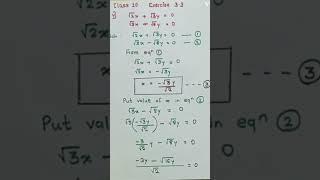 Class 10 Exercise 3.3
√2x + √3y = 0
√3x - √8y = 0
√2x + √3y = 0 ——— ①
√3x - √8y = 0 ——— ②
From eqⁿ
√2x + √3y = 0
√2x = -√3y
x = -√3y/√2 - - - - ③
Put value of x in eqⁿ ②
√3x - √8y = 0
√3(-√3y/√2) - √8y = 0
-3/√2 y - √8y = 0
-3y - √16y/√2 = 0